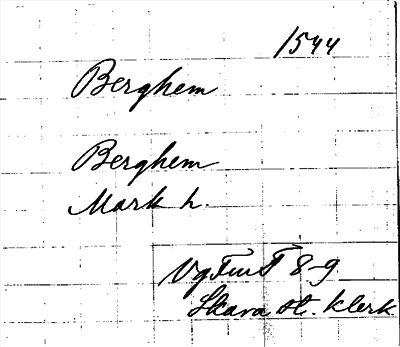 1544
Berghem
Berghem
Mark h.
VgFmT 8-9
Skara st. klerk.